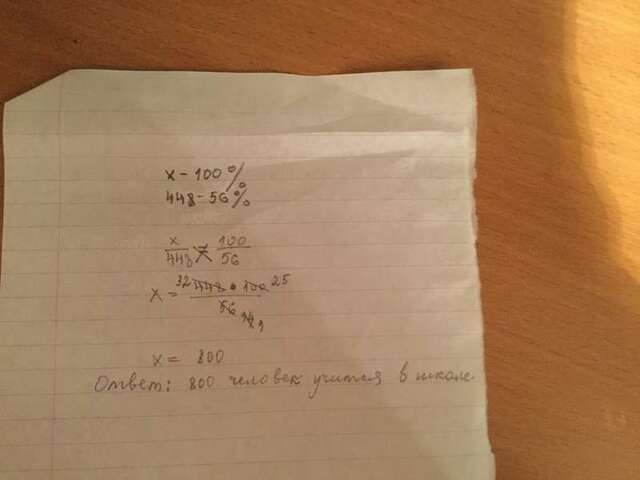 x - 100%
448 - 56%
x/448 = 100/56
x = 32 448 • 100 25 / 56 14 1
x = 800
Ответ: 800 человек учится в школе.